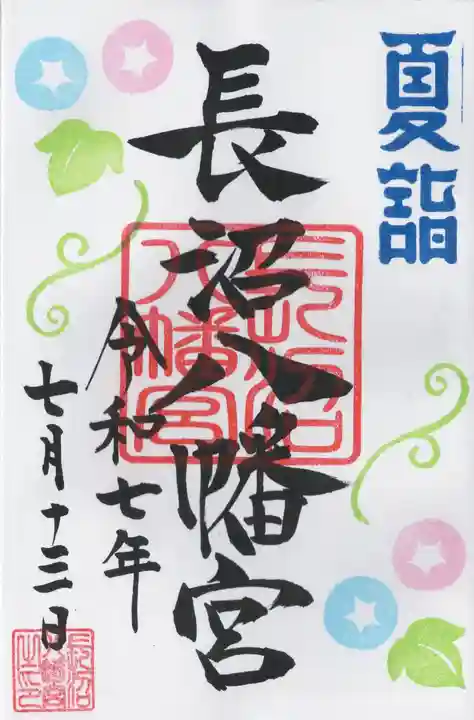 夏詣
長沼八幡宮
令和七年
七月十三日
長沼八幡宮
長沼八幡宮之印